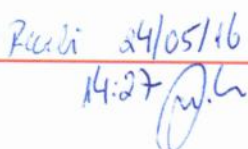 Recebi 24/05/16
14:27